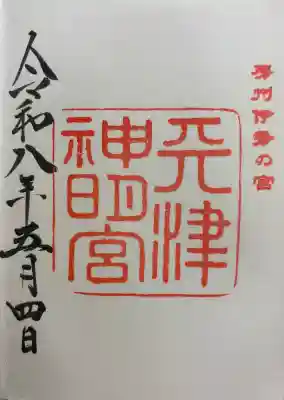 房州伊勢の宮
天津
神明宮
令和八年五月四日